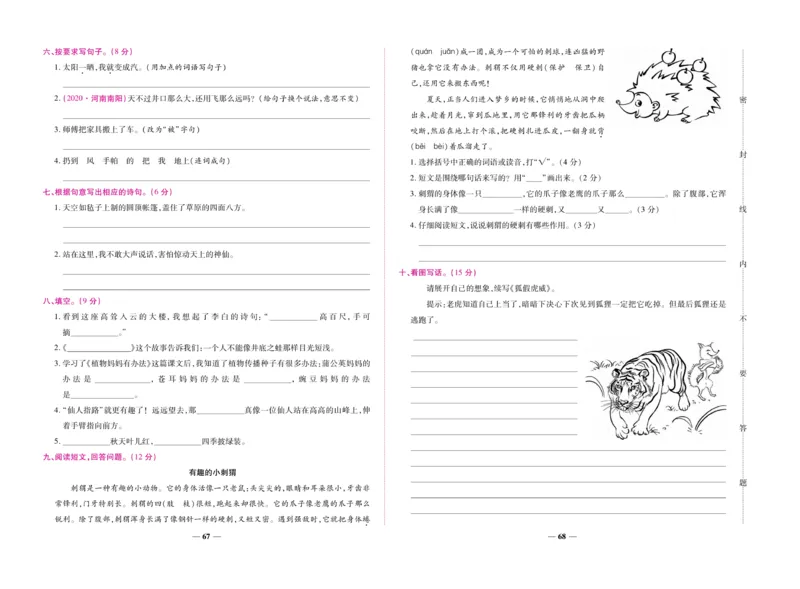 六、按要求写句子。(8 分)
1. 太阳一晒,我就变成汽。(用加点的词语写句子)
2. (2020·河南南阳)天不过井口那么大,还用飞那么远吗?(给句子换个说法,意思不变)
3. 师傅把家具搬上了车。(改为“被”字句)
4. 扔到 风 手帕 的 把 我 地上(连词成句)
七、根据句意写出相应的诗句。(6 分)
1. 天空如毡子上制的圆顶帐篷,盖住了草原的四面八方。
2. 站在这里,我不敢大声说话,害怕惊动天上的神仙。
八、填空。(9 分)
1. 看到这座高耸入云的大楼,我想起了李白的诗句:“____________高百尺,手可
摘____________。”
2.《________________》这个故事告诉我们:一个人不能像井底之蛙那样目光短浅。
3. 学习了《植物妈妈有办法》这篇课文后,我知道了植物传播种子有很多办法:蒲公英妈妈的
办法是______________,苍耳妈妈的办法是____________,豌豆妈妈的办法
是________________。
4. “仙人指路”就更有趣了!远远望去,那____________真像一位仙人站在高高的山峰上,伸
着手臂指向前方。
5. ____________秋天叶儿红,____________四季披绿装。
九、阅读短文,回答问题。(12 分)
有趣的小刺猬
刺猬是一种有趣的小动物。它的身体活像一只老鼠:头尖尖的,眼睛和耳朵很小,牙齿非
常锋利,门牙特别长。刺猬的四(肢 枝)很短,跑起来却很快。它的爪子像老鹰的爪子那么
锐利。除了腹部,刺猬浑身长满了像钢针一样的硬刺,又短又密。遇到强敌时,它就把身体蜷
— 67 —
(quán juǎn)成一团,成为一个可怕的刺球,连凶猛的野
猪也拿它没有办法。刺猬不仅用硬刺(保护 保卫)自
己,还用它来搬东西呢!
夏天,正当人们进入梦乡的时候,它悄悄地从洞中爬
出来,趁着月光,窜到瓜地里,用它那锋利的牙齿把瓜柄
咬断,然后在地上打个滚,把硬刺扎进瓜皮,一翻身就背
(bēi bèi)着瓜溜走了。
1. 选择括号中正确的词语或读音,打“√”。(4 分)
2. 短文是围绕哪句话来写的?用“____”画出来。(2 分)
3. 刺猬的身体像一只__________,它的爪子像老鹰的爪子那么__________。除了腹部,它浑
身长满了像______________一样的硬刺,又________又______。(3 分)
4. 仔细阅读短文,说说刺猬的硬刺有哪些作用。(3 分)
十、看图写话。(15 分)
请展开自己的想象,续写《狐假虎威》。
提示:老虎知道自己上当了,暗暗下决心下次见到狐狸一定把它吃掉。但最后狐狸还是
逃跑了。
— 68 —
密
封
线
内
不
要
答
题